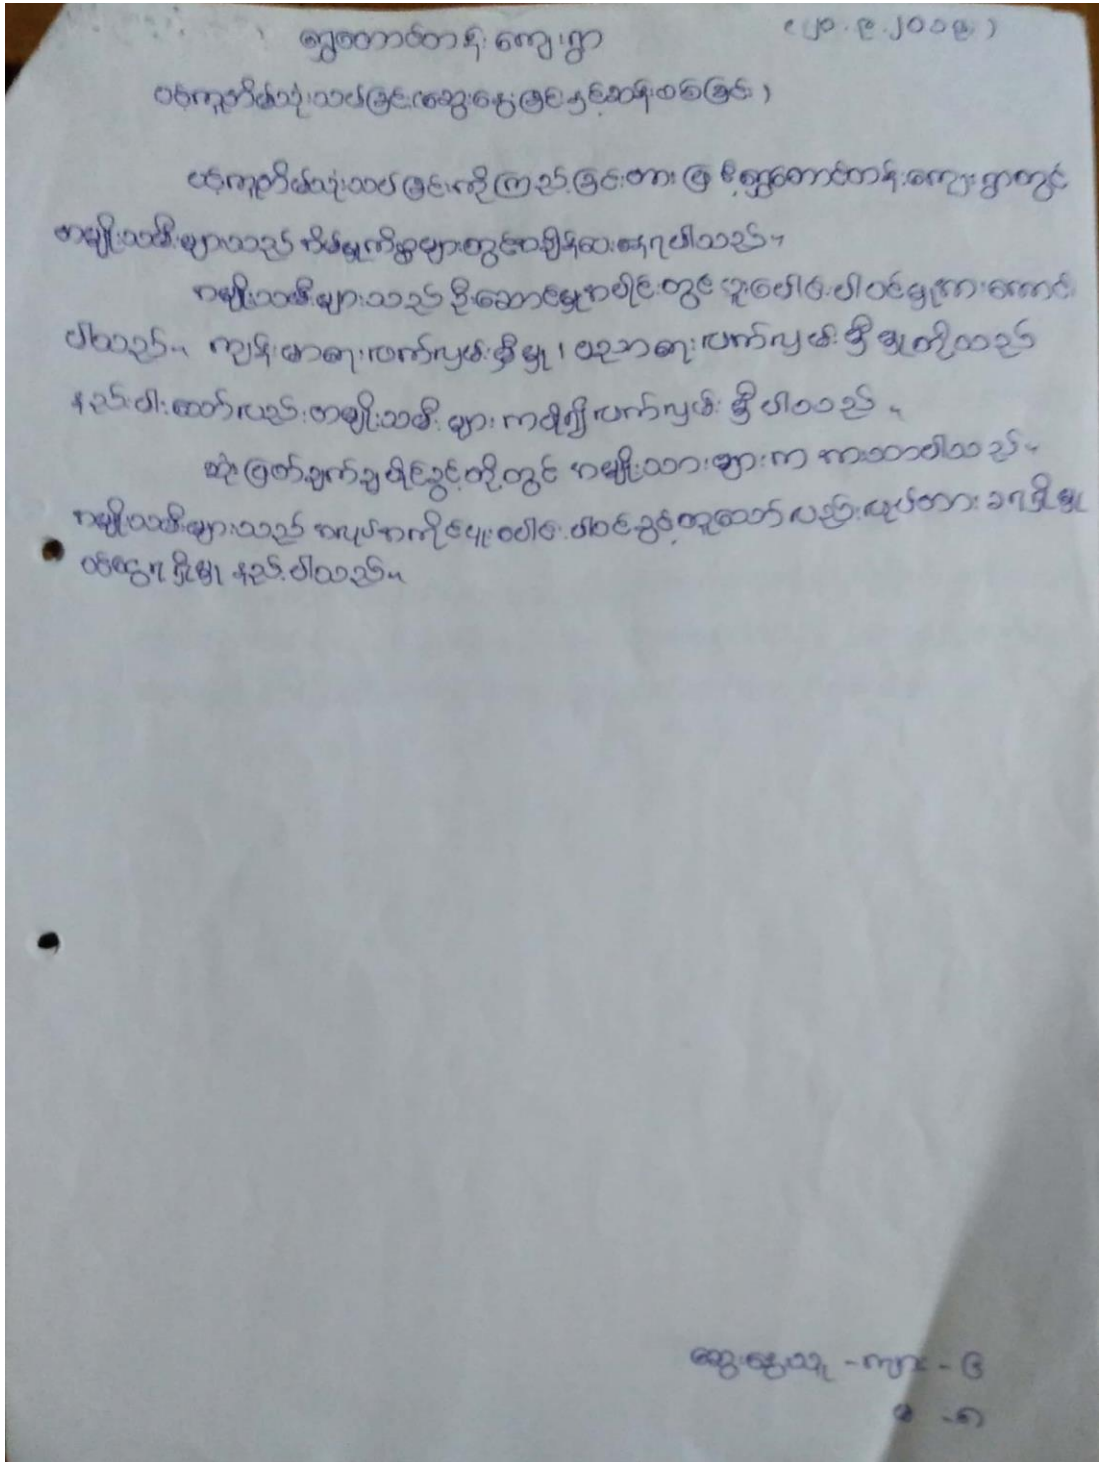 ရွှေတောင်တန်းကျေးရွာ (၂၀.၉.၂၀၁၉)
ပင့်ကူအိမ်သုံးသပ်ခြင်း(ဆွေးနွေးခြင်းနှင့်ဆန်းစစ်ခြင်း)
ပင့်ကူအိမ်သုံးသပ်ခြင်းကိုကြည့်ခြင်းအားဖြင့်ရွှေတောင်တန်းကျေးရွာတွင်
အမျိုးသမီးများသည် အိမ်မှုကိစ္စများတွင်အချိန်ပေးနေရပါသည်။
အမျိုးသမီးများသည် ဦးဆောင်မှုအပိုင်းတွင် ပူးပေါင်းပါဝင်မှုအားကောင်း
ပါသည်။ ကျန်းမာရေးလက်လှမ်းမှီမှု၊ ပညာရေးလက်လှမ်းမှီမှုတို့သည်
နည်းပါးသော်လည်းအမျိုးသမီးများကပို၍လက်လှမ်းမှီပါသည်။
ဆုံးဖြတ်ချက်ချပိုင်ခွင့်တို့တွင် အမျိုးသားများက အားသာပါသည်။
အမျိုးသမီးများသည် အလုပ်အကိုင်ပူးပေါင်းပါဝင်ခွင့်တူသော်လည်းလုပ်အားခရရှိမှု
ဝင်ငွေရရှိမှု နည်းပါသည်။
ဆွေးနွေးသူ - ကျား - ၆
မ - ၈